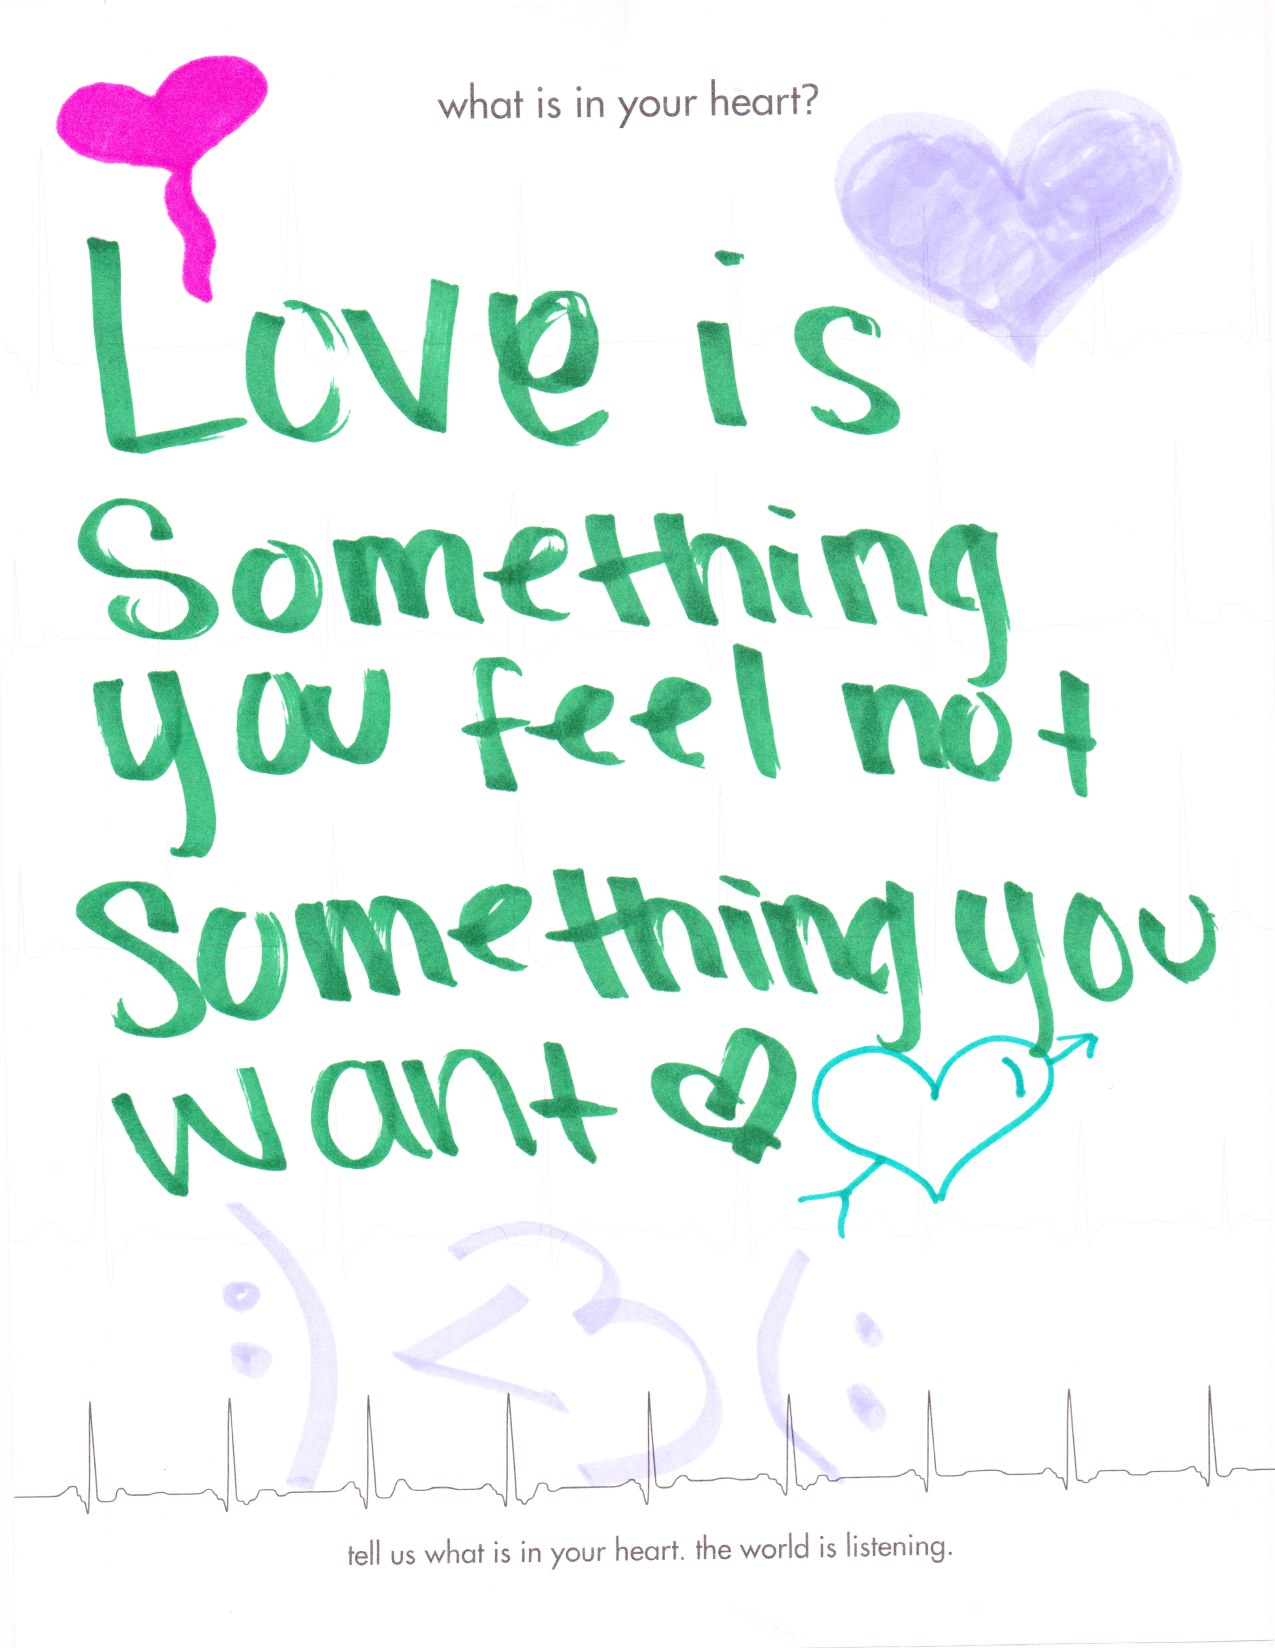 what is in your heart?
Love is
Something
you feel not
Something you
want
:) <3 (:
tell us what is in your heart. the world is listening.